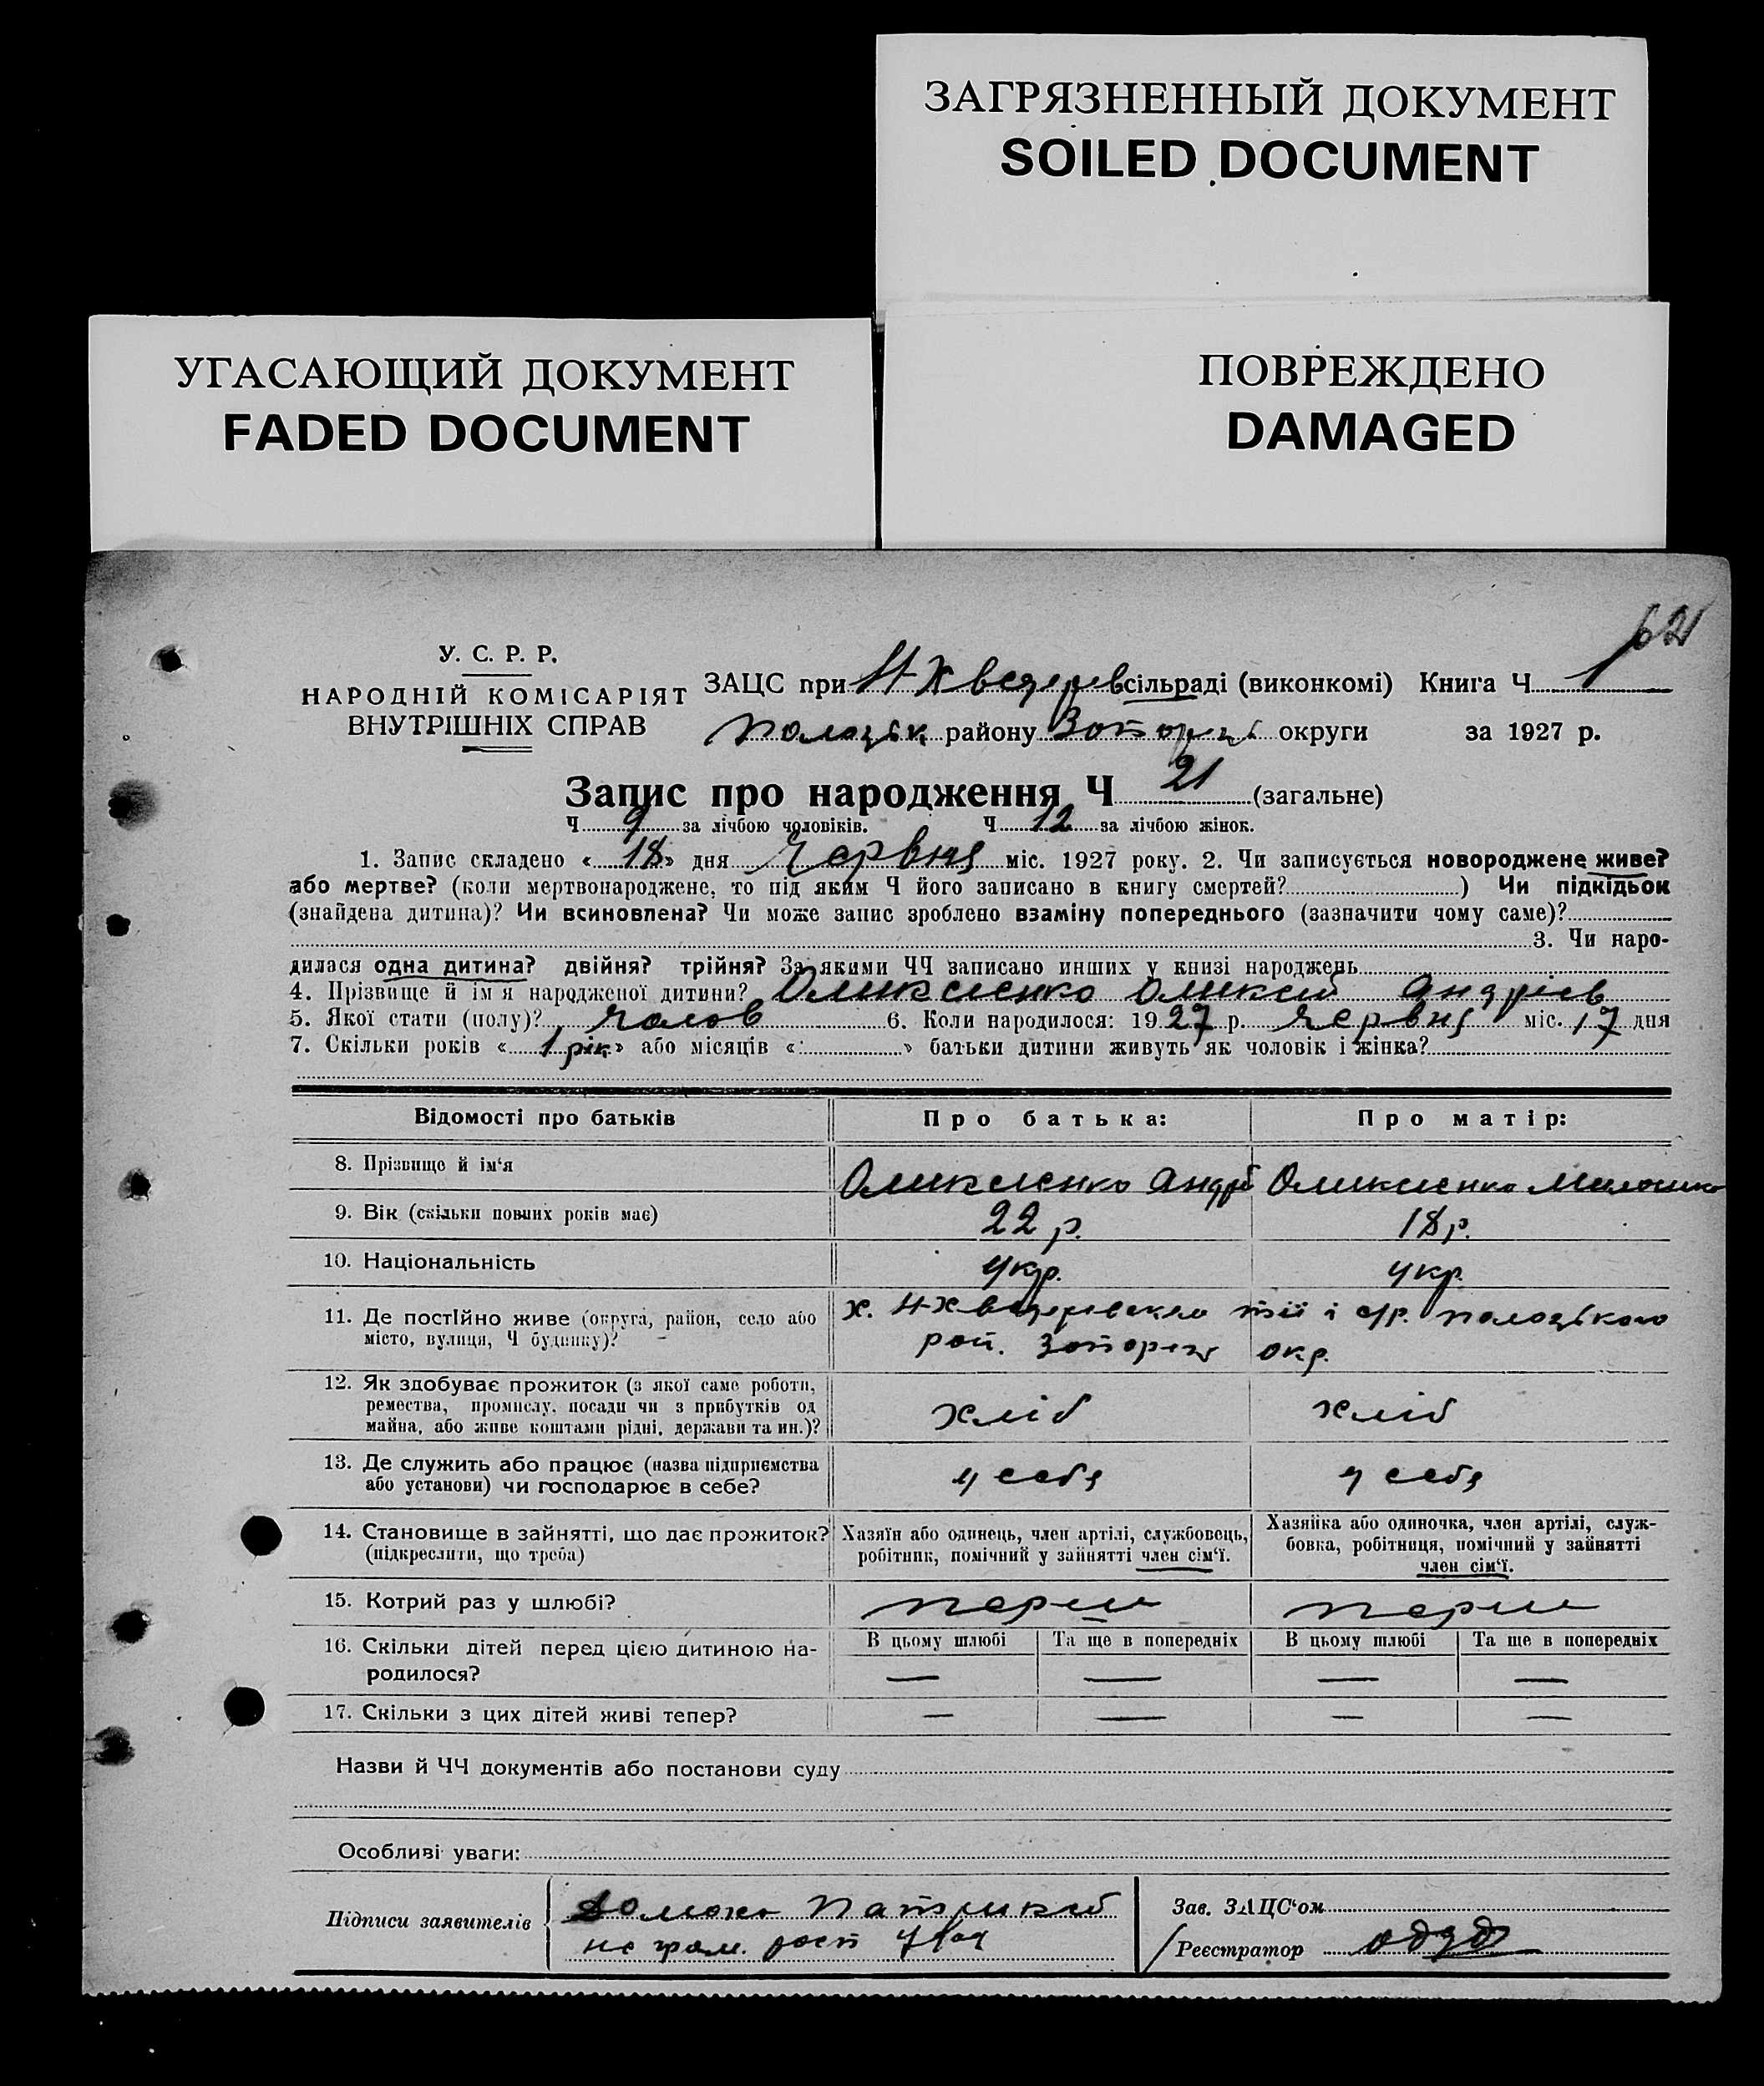 ЗАГРЯЗНЕННЫЙ ДОКУМЕНТ
SOILED DOCUMENT
УГАСАЮЩИЙ ДОКУМЕНТ
FADED DOCUMENT
ПОВРЕЖДЕНО
DAMAGED
621
У. С. Р. Р.
НАРОДНІЙ КОМІСАРІЯТ
ВНУТРІШНІХ СПРАВ
ЗАЦС при сільраді (виконкомі) Книга Ч 1
району округи за 1927 р.
Запис про народження Ч 21 (загальне)
Ч 9 за лічбою чоловіків. Ч 12 за лічбою жінок.
1. Запис складено « 18 » дня Червня міс. 1927 року. 2. Чи записується новороджене живе?
або мертве? (коли мертвонароджене, то під яким Ч його записано в книгу смертей? ) Чи підкідьок
(знайдена дитина)? Чи всиновлена? Чи може запис зроблено взаміну попереднього (зазначити чому саме)?
3. Чи наро-
дилася одна дитина? двійня? трійня? За якими ЧЧ записано инших у книзі народжень
4. Прізвище й ім я народженої дитини? Оликсієнко Оликсій Андріев
5. Якої стати (полу)? чолов 6. Коли народилося: 1927 р. Червня міс. 17 дня
7. Скільки років « 1 рік » або місяців « » батьки дитини живуть як чоловік і жінка?
Відомості про батьків Про батька: Про матір:
8. Прізвище й ім‘я Оликсієнко Андрій Оликсієнко
9. Вік (скільки повних років має) 22 р. 18 р.
10. Національність укр. укр.
11. Де постійно живе (округа, район, село або
місто, вулиця, Ч будинку)?
окр.
12. Як здобуває прожиток (з якої саме роботи,
ремества, промислу, посади чи з прибутків од
майна, або живе коштами рідні, держави та ин.)?
хліб хліб
13. Де служить або працює (назва підприємства
або установи) чи господарює в себе?
у себя у себя
14. Становище в зайнятті, що дає прожиток?
(підкреслити, що треба)
Хазяїн або одинець, член артілі, службовець,
робітник, помічний у зайнятті член сім‘ї.
Хазяйка або одиночка, член артілі, служ-
бовка, робітниця, помічний у зайнятті
член сім‘ї.
15. Котрий раз у шлюбі? перши перши
16. Скільки дітей перед цією дитиною на-
родилося?
В цьому шлюбі Та ще в попередніх В цьому шлюбі Та ще в попередніх
— — — —
17. Скільки з цих дітей живі тепер? — — — —
Назви й ЧЧ документів або постанови суду
Особливі уваги:
Підписи заявителів
не грам.
Зав. ЗАЦС‘ом
Реєстратор